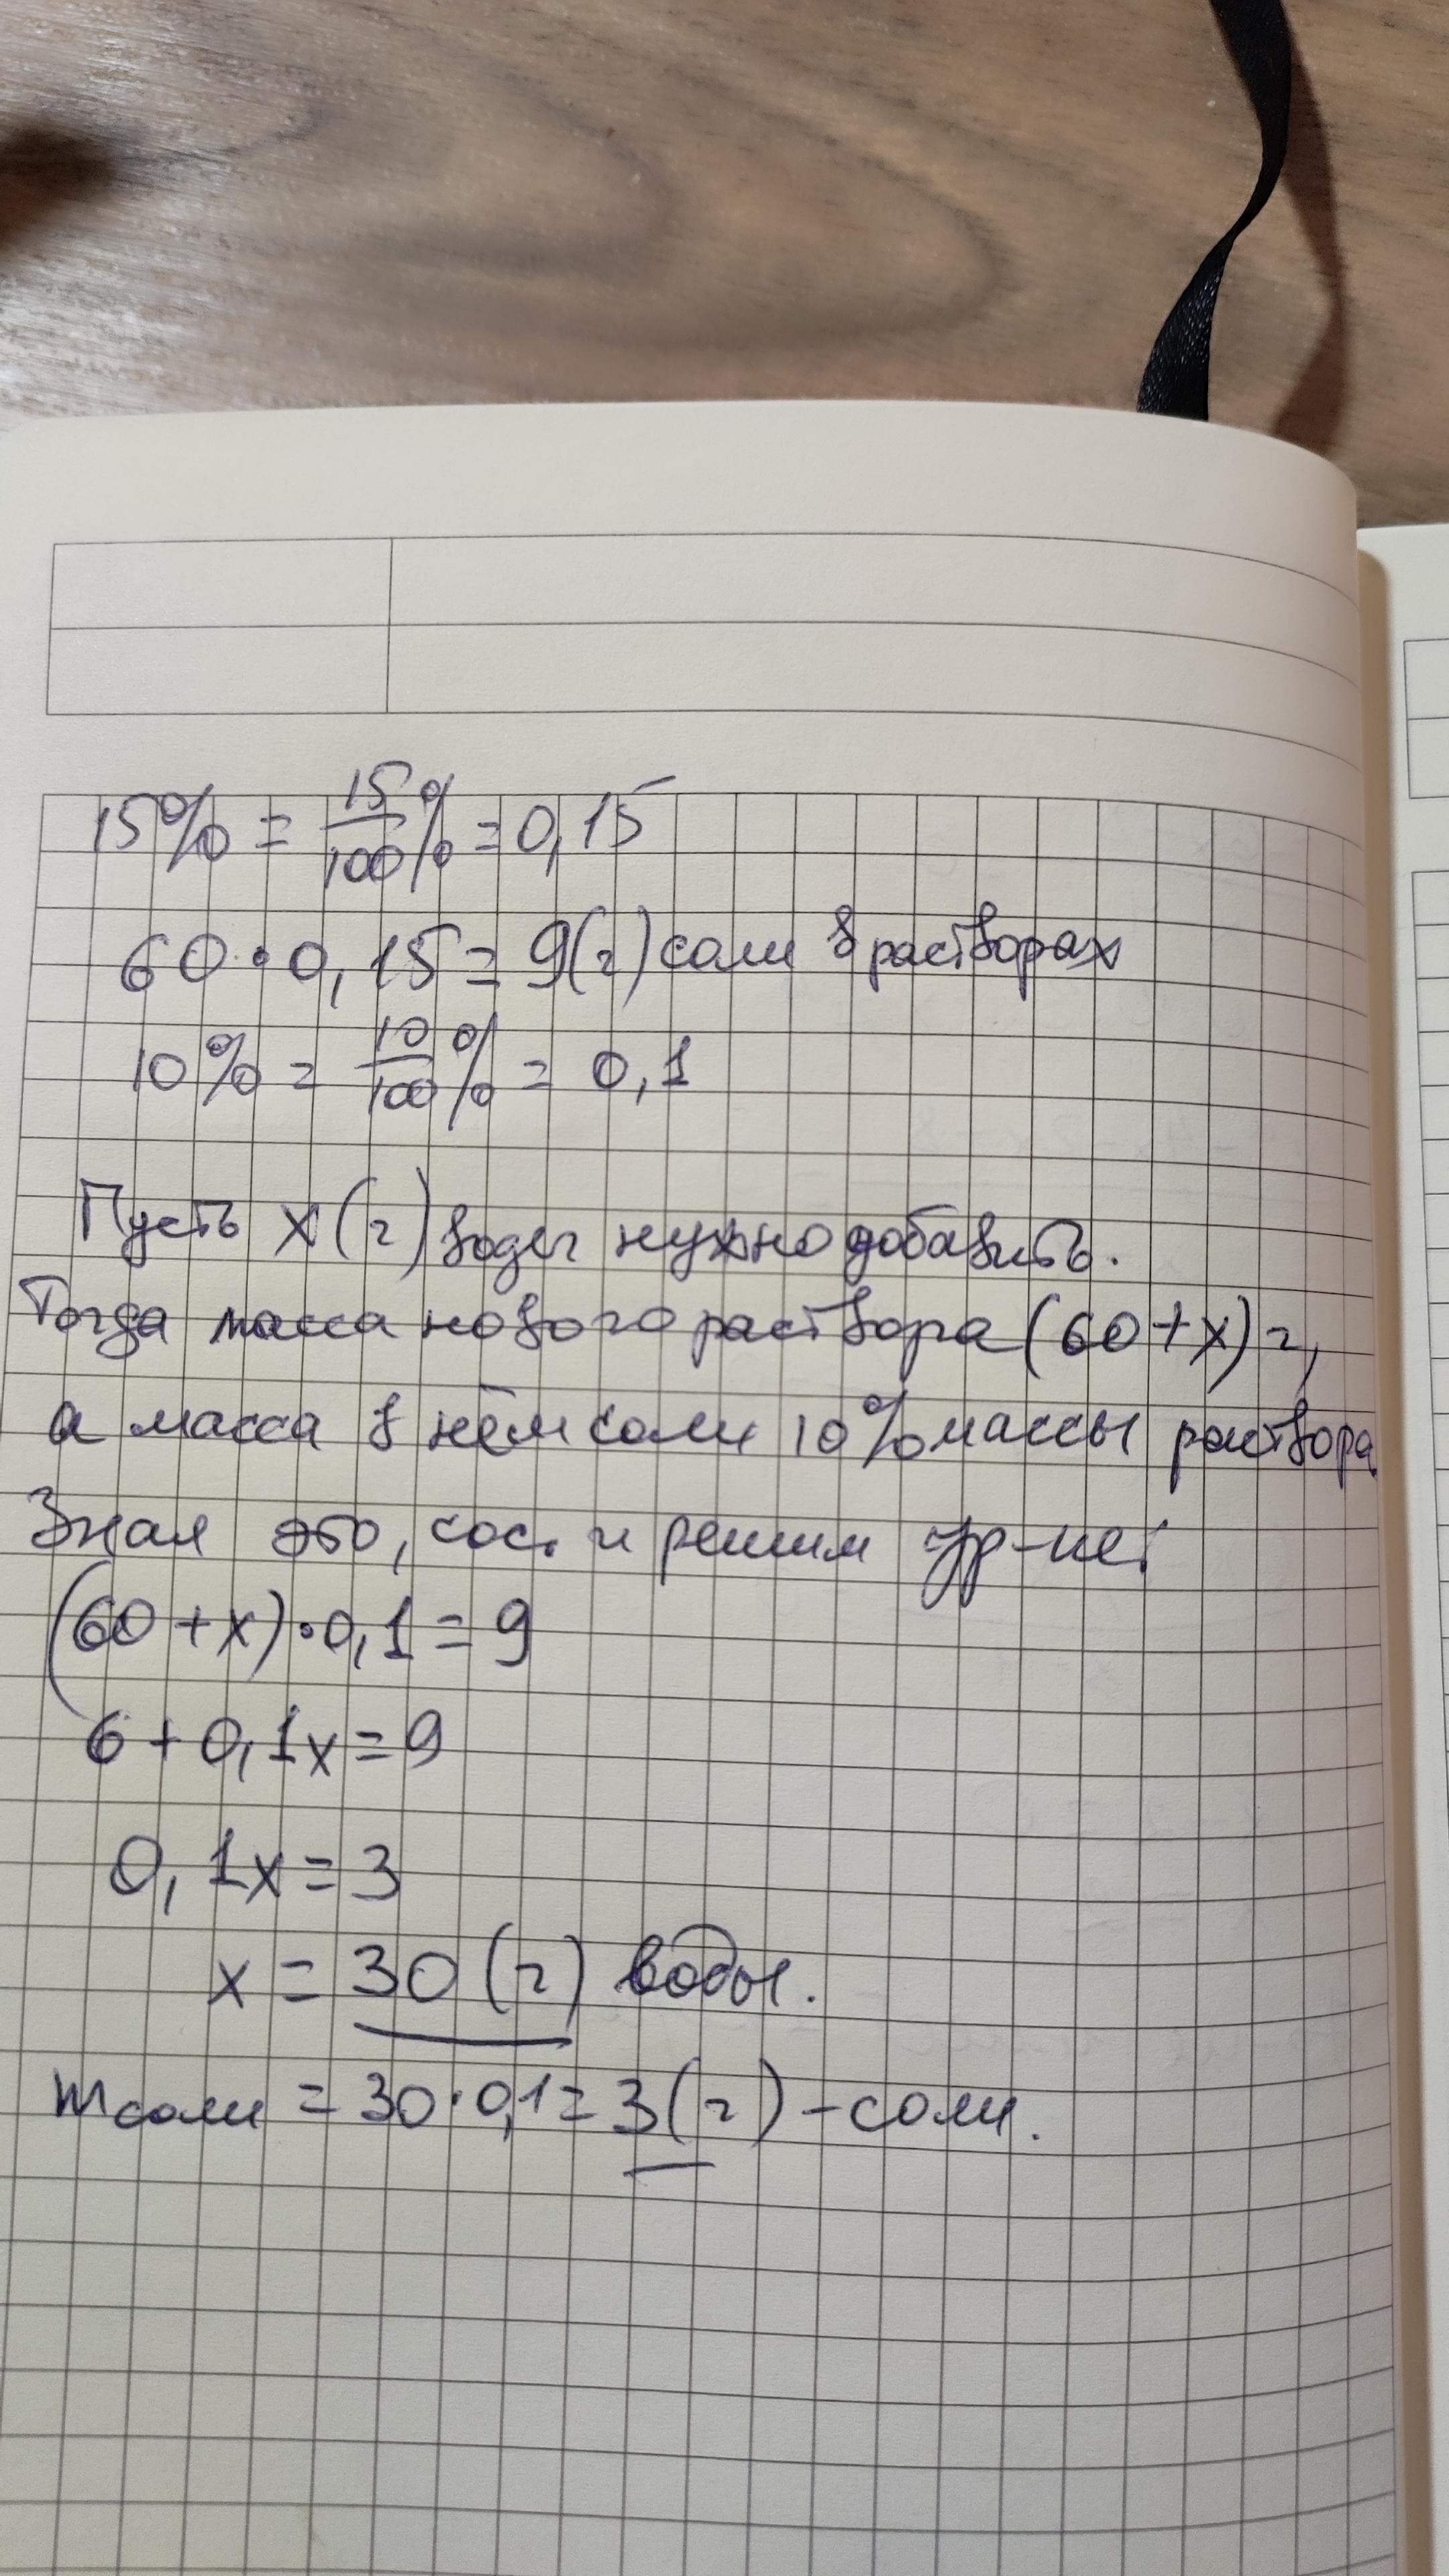 15% = 15/100% = 0,15
60 · 0,15 = 9(г) соли в растворах
10% = 10/100% = 0,1
Пусть х(г) воды нужно добавить.
Тогда масса нового раствора (60+х)г,
а масса в нём соли 10% массы раствора
Зная это, сос. и решим ур-ие:
(60+х)·0,1=9
6+0,1х=9
0,1х=3
х = 30 (г) воды.
m соли = 30·0,1= 3(г) – соли.